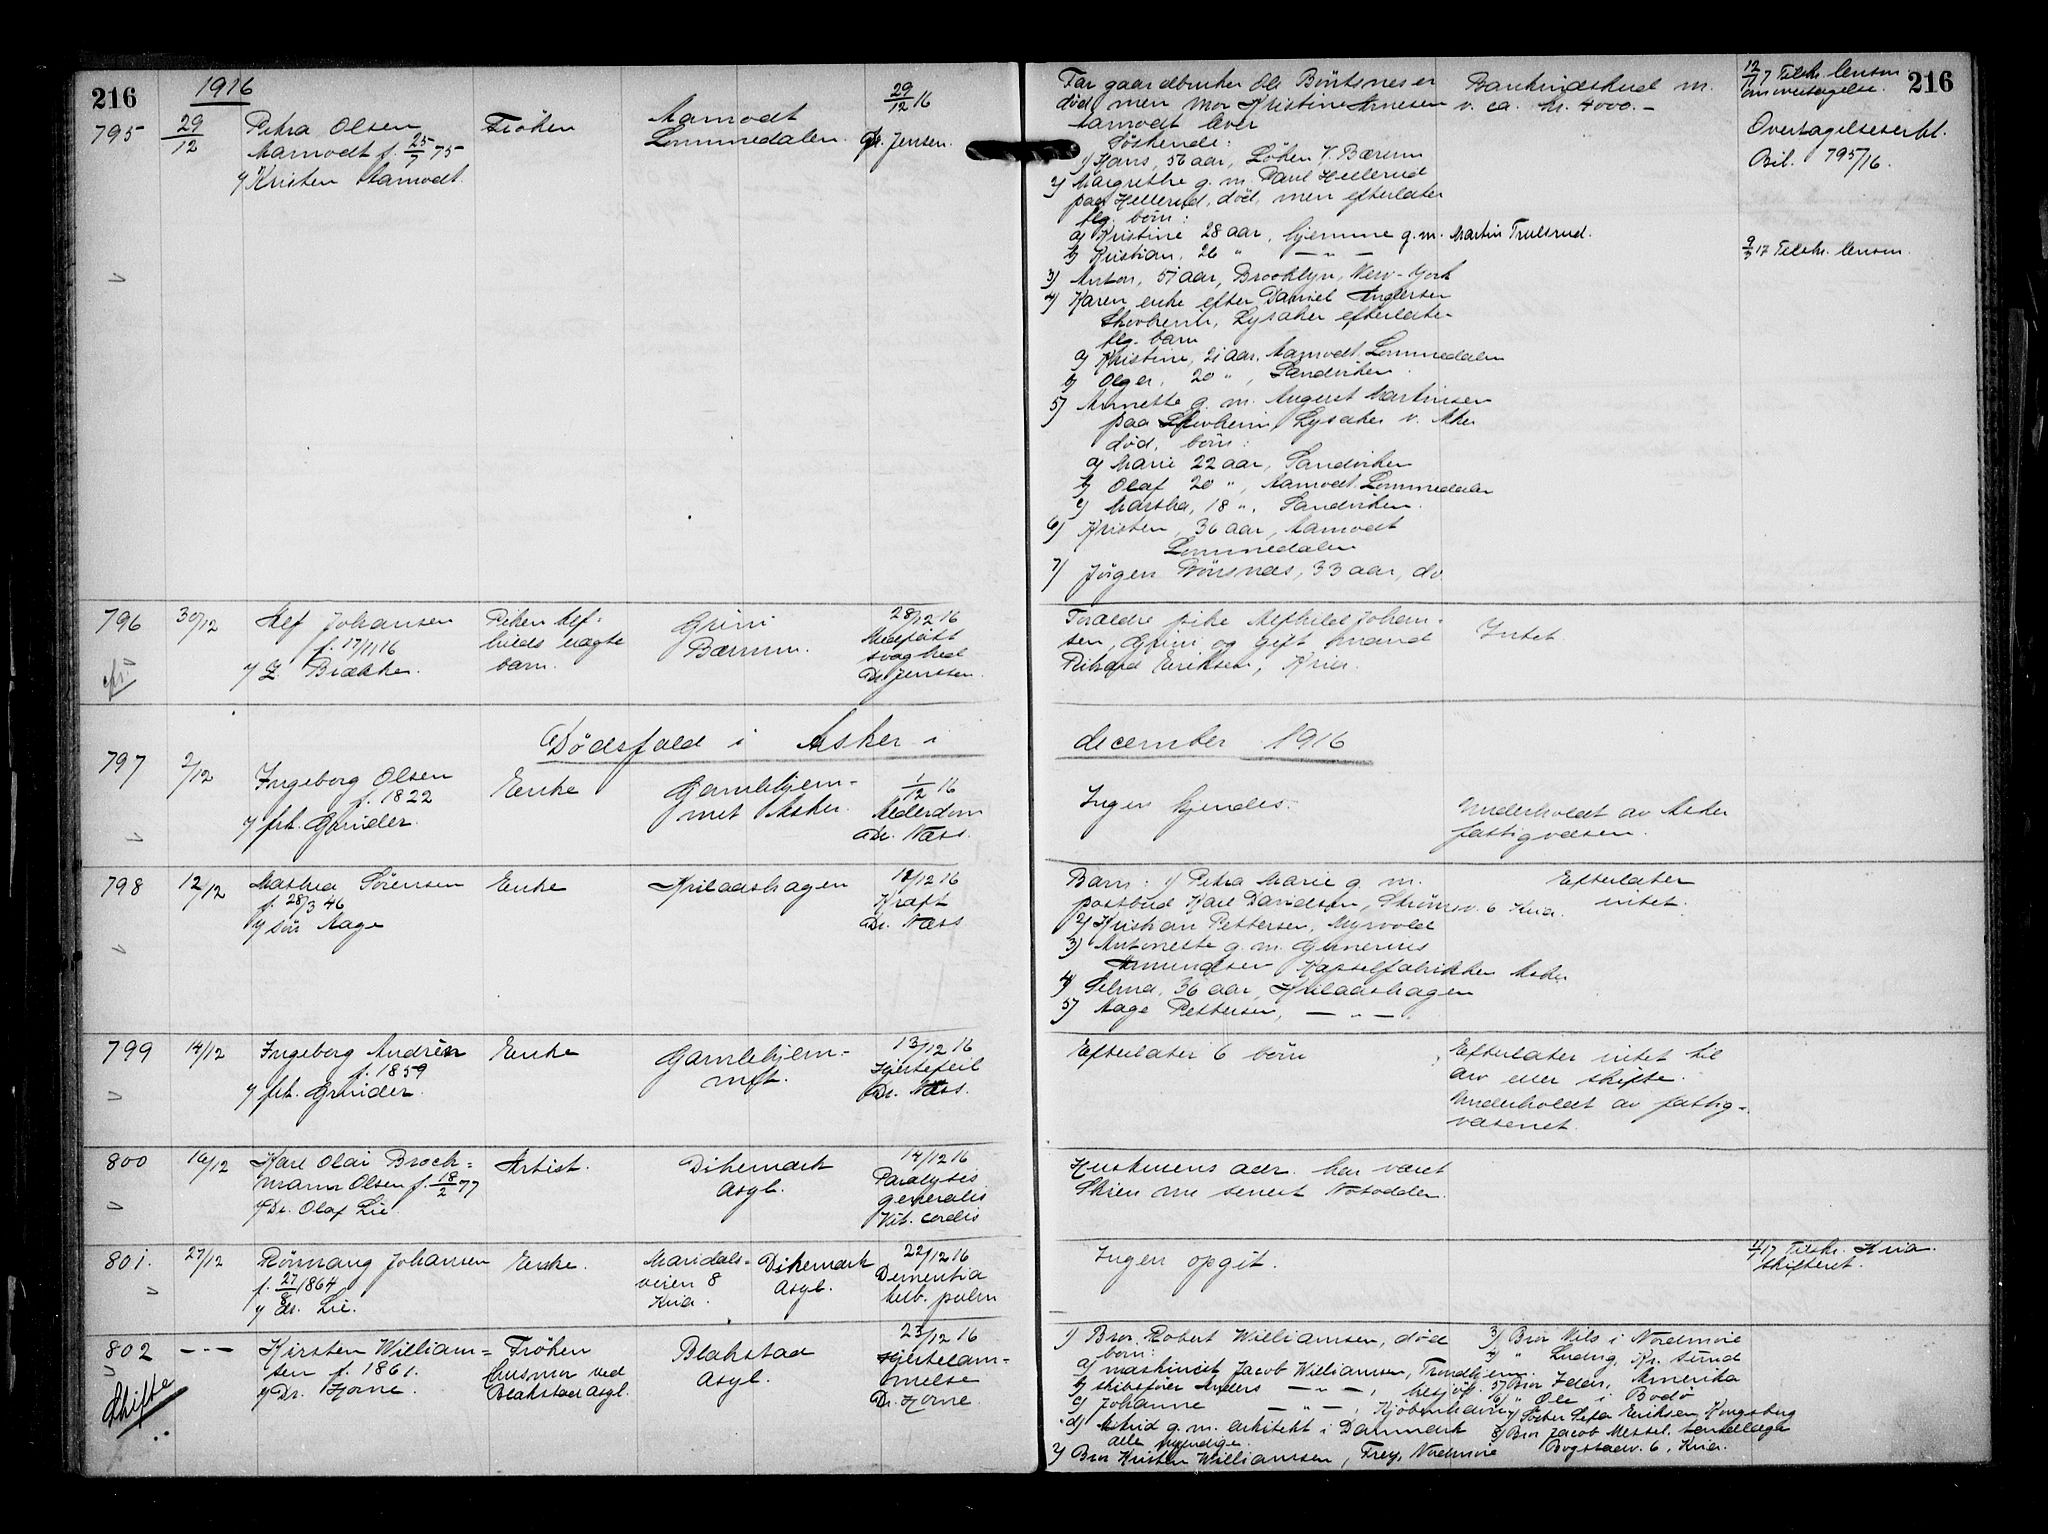 216
1916
795
29/12
Petra Olsen
Aamodt f. 25/7 75
v/ Kristen Aamodt.
Frøken
Aamodt
Lommedalen.
29/12 16
Dr. Jensen.
Far gaardbruker Ole Böntsnes er
død, men mor Kristine Arnesen
Aamodt lever
Søskende:
1) Hans, 56 aar, Løken V. Bærum
2) Margrethe g. m. Paul Hellerud
paa Hellerud, død, men efterlater
flg. børn:
a) Kristine 28 aar, hjemme g. m. Martin Trulsrud.
b) Kristian, 26 " — " —
3) Anton, 51 aar, Brooklyn, New-York
4) Karen, enke efter Daniel Andersen
Skovheim, Lysaker efterlater
flg. barn
a) Kristine, 21 aar, Aamodt Lommedalen
b) Olger, 20 ", Sandviken
5) Annette g. m. August Martinsen
paa Skovheim, Lysaker v. Aker
død, børn:
a) Marie 22 aar, Sandviken
b) Olaf 20 ", Aamodt Lommedalen
c) Martha, 18 ", Sandviken.
6) Kristen, 36 aar, Aamodt
Lommedalen
7) Jørgen Bönsnes, 33 aar, do
Bankindskud m.
v. ca. kr. 4000.-
12/1 17 Tilskr. lensm.
om overtagelse.
216
Overtagelseserkl.
Bil. 795/16.
9/3 17 Tilskr. lensm.
796
30/12
Alf Johansen
f. 17/11 16
v/ L. Brække.
Piken Alf-
hilds uægte
barn.
Grini
Bærum.
28/12 16
Medfødt
svaghed
Dr. Jenssen.
Forældre pike Alfhild Johan-
sen, Grini og gift mand
Rikard Eriksen, Kria.
Intet.
Dødsfald i Asker i december 1916
797
2/12
Ingeborg Olsen
f. 1822
v/ frk. Grinder.
Enke
Gamlehjem-
met Asker.
1/12 16
Alderdom
Dr. Næss.
Ingen kjendes.
Underholdt av Asker
fattigvæsen.
798
12/12
Mathea Sørensen
f. 28/3 46
v/ søn Aage
Enke
Hvilaashagen
12/12 16
Kraft
Dr. Næss
Barn: 1) Petra Marie g. m.
postbud Karl Davidsen, Strömsv. 6 Kria.
2) Kristian Pettersen, Myrvold
3) Antonette g. m. Gunerius
Amundsen Kapselfabrikken Asker
4) Selma, 36 aar, Hvilaashagen
5) Aage Pettersen, — " —
Efterlater
intet.
799
14/12
Ingeborg Andrèn
f. 1859
v/ frk. Grinder.
Enke
Gamlehjem-
met.
13/12 16
Hjertefeil
Dr. Næss.
Efterlater 6 børn
Efterlater intet til
arv eller skifte.
Underholdt av fattig-
væsenet.
800
16/12
Karl Olai Broch-
mann Olsen f. 18/2 77
v/ Dr. Olaf Lie.
Artist.
Dikemark
Asyl.
14/12 16
Paralysis
generalis
Vit. cordis
Hustruens adr. har været
Skien nu senest Notodden.
801.
27/12
Rönnaug Johansen
f. 27/8 1864
v/ dr. Lie.
Enke.
Maridals-
veien 8
Kria.
Dikemark
Asyl.
22/12 16
Dementia
tub. pulm
Ingen opgit.
1/1 17 Tilskr. Kria
skifteret.
802
Skifte
— " —
Kirsten William-
sen f. 1861.
v/ Dr. Hjorne.
Frøken
husmor ved
Blakstad Asyl.
Blakstad
Asyl.
23/12 16
Hjertelam-
melse
Dr. Hjorne.
1) Bror Robert Williamsen, død
børn:
a) maskinist Jacob Williamsen, Trondhjem.
b) skibsfører Anders — " —,
c) Johanne — " —, Kjøbenhavn
d) Astrid g. m. arkitekt i Danmark
alle myndige.
2) Bror Kristen Williamsen, Frey, Nordmøre
3) Bror Nils i Nordmøre
4) " Ludvig, Kr. sund
5) Bror Peder, Amerika
6) " Ole i Bodø
7) Søster Sefa Eriksen, Kongsberg
8) Bror Jacob Messel, tandlæge
Bogstadv. 6, Kria.